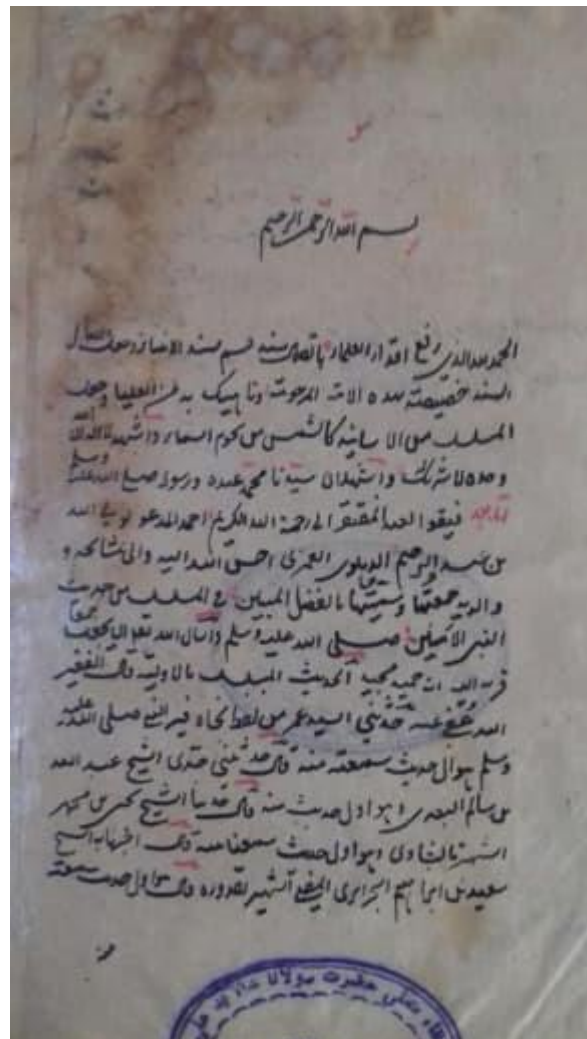 بسم الله الرحمن الرحيم
الحمد لله الذي رفع اقدار العلماء باتصال سند
السند خصيصته هذه الامة المرحومة وناهيك به من العليا وجعل
المسلسل من الاسانيد كالشمس من نجوم السماء واشهد ان لا اله الا الله
وحده لا شريك واشهد ان سيدنا محمد عبده ورسوله صلى الله عليه وسلم
اما بعد فيقول العبد المفتقر الى رحمة الله الكريم احمد المدعو بولي الله
بن عبد الرحيم الدهلوي العمري احسن الله اليه والى مشائخه و
والديه جمعتها وسميتها بالفضل المبين في المسلسل من حديث
النبي الامين صلى الله عليه وسلم واسأل الله تعالى ان
قريب الحديث المسلسل بالاولية قال الفقير
عفي عنه حدثني السيد عمر من لفظه تجاه قبر النبي صلى الله عليه
وسلم وهو اول حديث سمعته منه قال حدثني جدي الشيخ عبد الله
بن سالم البصري وهو اول حديث منه قال حدثنا الشيخ يحيى بن محمد
الشهير بالشاوي وهو اول حديث سمعنا منه قال اخبرنا به الشيخ
سعيد بن ابراهيم الجزائري المفتي الشهير بقدوره قال هو اول حديث سمعته
حضرت مولانا